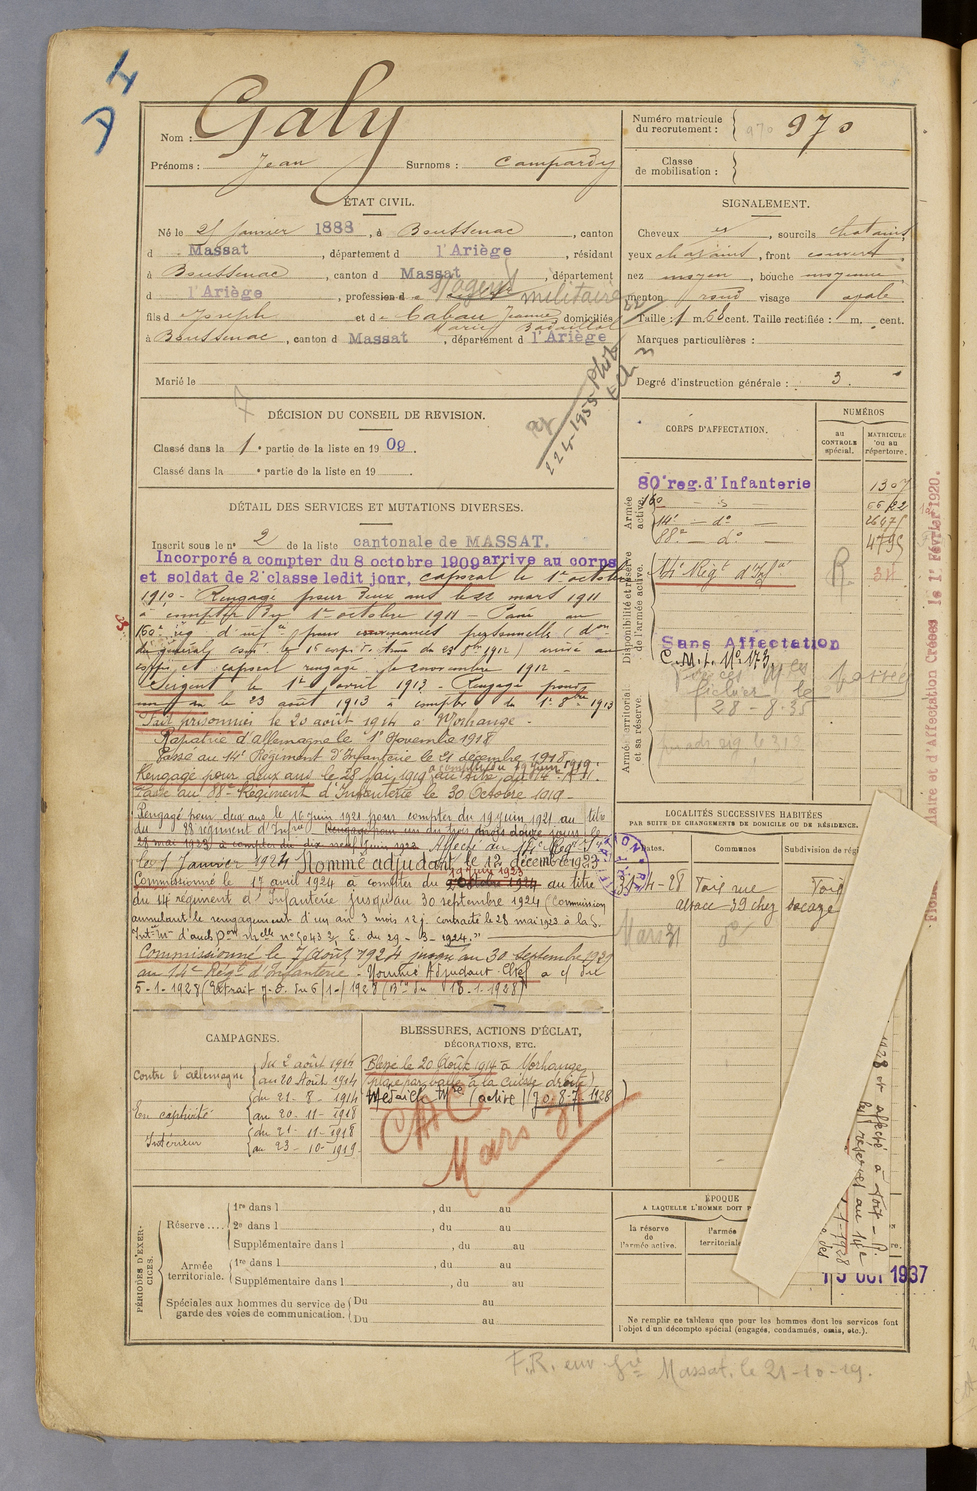 A 4
Nom : Galy
Prénoms : Jean Surnoms : Campardy
Numéro matricule du recrutement : 970 970
Classe de mobilisation :
ÉTAT CIVIL.
Né le janvier 1888, à Boussenac, canton
d Massat, département d l'Ariège, résidant
à Boussenac, canton d Massat, département
d l'Ariège, profession d militaire
fils d Joseph et d Cabau Jeanne domiciliés
Marie
à Boussenac, canton d Massat, département d l'Ariège
Marié le
SIGNALEMENT.
Cheveux , sourcils chatains
yeux chatains, front couvert
nez moyen, bouche moyenne
menton rond visage ovale
Taille : 1 m. 68 cent. Taille rectifiée : 1 m. cent.
Marques particulières :
Degré d'instruction générale : 3.
DÉCISION DU CONSEIL DE REVISION.
Classé dans la 1e partie de la liste en 1909.
Classé dans la e partie de la liste en 19
DÉTAIL DES SERVICES ET MUTATIONS DIVERSES.
Inscrit sous le n° 2 de la liste cantonale de MASSAT.
Incorporé a compter du 8 octobre 1909 arrive au corps
et soldat de 2e classe ledit jour, caporal le 1er octobre
1910 - Rengagé pour deux ans le 22 mars 1911
à compter du 1er octobre 1911 - Passé au
160e rég d'inf pour convenances personnelles (don
du général com. le 16e corps d'Armée du 23 1912) arrivé au
corps et caporal rengagé le novembre 1912 -
Sergent le 1er avril 1913 - Rengagé pour
un an le 23 août 1913 à compter du 1er 8bre 1913
Fait prisonnier le 20 août 1914 à Morhange -
Rapatrié d'Allemagne le 1er Novembre 1918
Passé au 14e Régiment d'Infanterie le 21 décembre 1918
Rengagé pour deux ans le 28 Mai 1919 à compter du 19 juin 1919 au titre du 14e R.I.
Passé au 88e Régiment d'Infanterie le 30 Octobre 1919 -
Rengagé pour deux ans le 16 Juin 1921 pour compter du 19 juin 1921 au titre
du 88 régiment d'Infie Rengagé pour un an trois mois douze jours le
28 mai 1923 à compter du dix neuf juin 1923 Affecté au 14e Régt Ie
le 1 Janvier 1924 Nommé adjudant le 12 décembre 1923
Commissionné le 17 avril 1924 à compter du 19 juin 1923 au titre
du 14e régiment d'Infanterie jusqu'au 30 septembre 1924 (Commission
annulant le rengagement d'un an 3 mois 12 j. contracté le 28 mai 1923 à la S.
Intce Mre d'auch Don Melle n° 5043 3/5 E. du 29 - 3 - 1924."
Commissionné le 7 Août 1924 jusqu'au 30 septembre 1931
au 14e Régt d'Infanterie - Nommé Adjudant-Chef à c/ du
5-1-1928 (Extrait J.O. du 6/1/1928 (Bin du 18-1-1928)
CORPS D'AFFECTATION.
NUMÉROS
au CONTROLE spécial.
MATRICULE ou au répertoire.
Armée active.
80e reg. d'Infanterie 1307
160
14e - do -
88e - do - 4795
Disponibilité et réserve de l'armée active.
14e Régt d'Infie R. 34
Sans Affectation
C.M.I. N° 173
fichier le
28-8-35
Armée territoriale et sa réserve.
LOCALITÉS SUCCESSIVES HABITÉES
PAR SUITE DE CHANGEMENTS DE DOMICILE OU DE RÉSIDENCE.
Dates. Communes Subdivision de régi
4-28 Foix rue Foix
alsace 39 chez
Mars 31 do
CAMPAGNES.
Contre l'allemagne
du 2 août 1914
au 20 Août 1914
En captivité
du 21 - 8 - 1914
au 20 - 11 - 1918
Intérieur
du 21 - 11 - 1918
au 23 - 10 - 1919
BLESSURES, ACTIONS D'ÉCLAT,
DÉCORATIONS, ETC.
Blessé le 20 Août 1914 à Morhange,
plaie par balle à la cuisse droite
Médaille Mre (active) J.O. 8-7-1928
Mars 31
PÉRIODES D'EXERCICES.
Réserve
1re dans l , du au
2e dans l , du au
Supplémentaire dans l , du au
Armée territoriale.
1re dans l , du au
Supplémentaire dans l , du au
Spéciales aux hommes du service de garde des voies de communication.
Du au
Du au
ÉPOQUE
A LAQUELLE L'HOMME DOIT P
la réserve de l'armée active.
l'armée territoriale
OCT 1937
Ne remplir ce tableau que pour les hommes dont les services font
l'objet d'un décompte spécial (engagés, condamnés, omis, etc.).
F.R. env. Gie Massat. le 21-10-19.
laire et d'Affectation Créées le 1er Février 1920.
1928 et affecté à Foix - P.
réserves au 14e